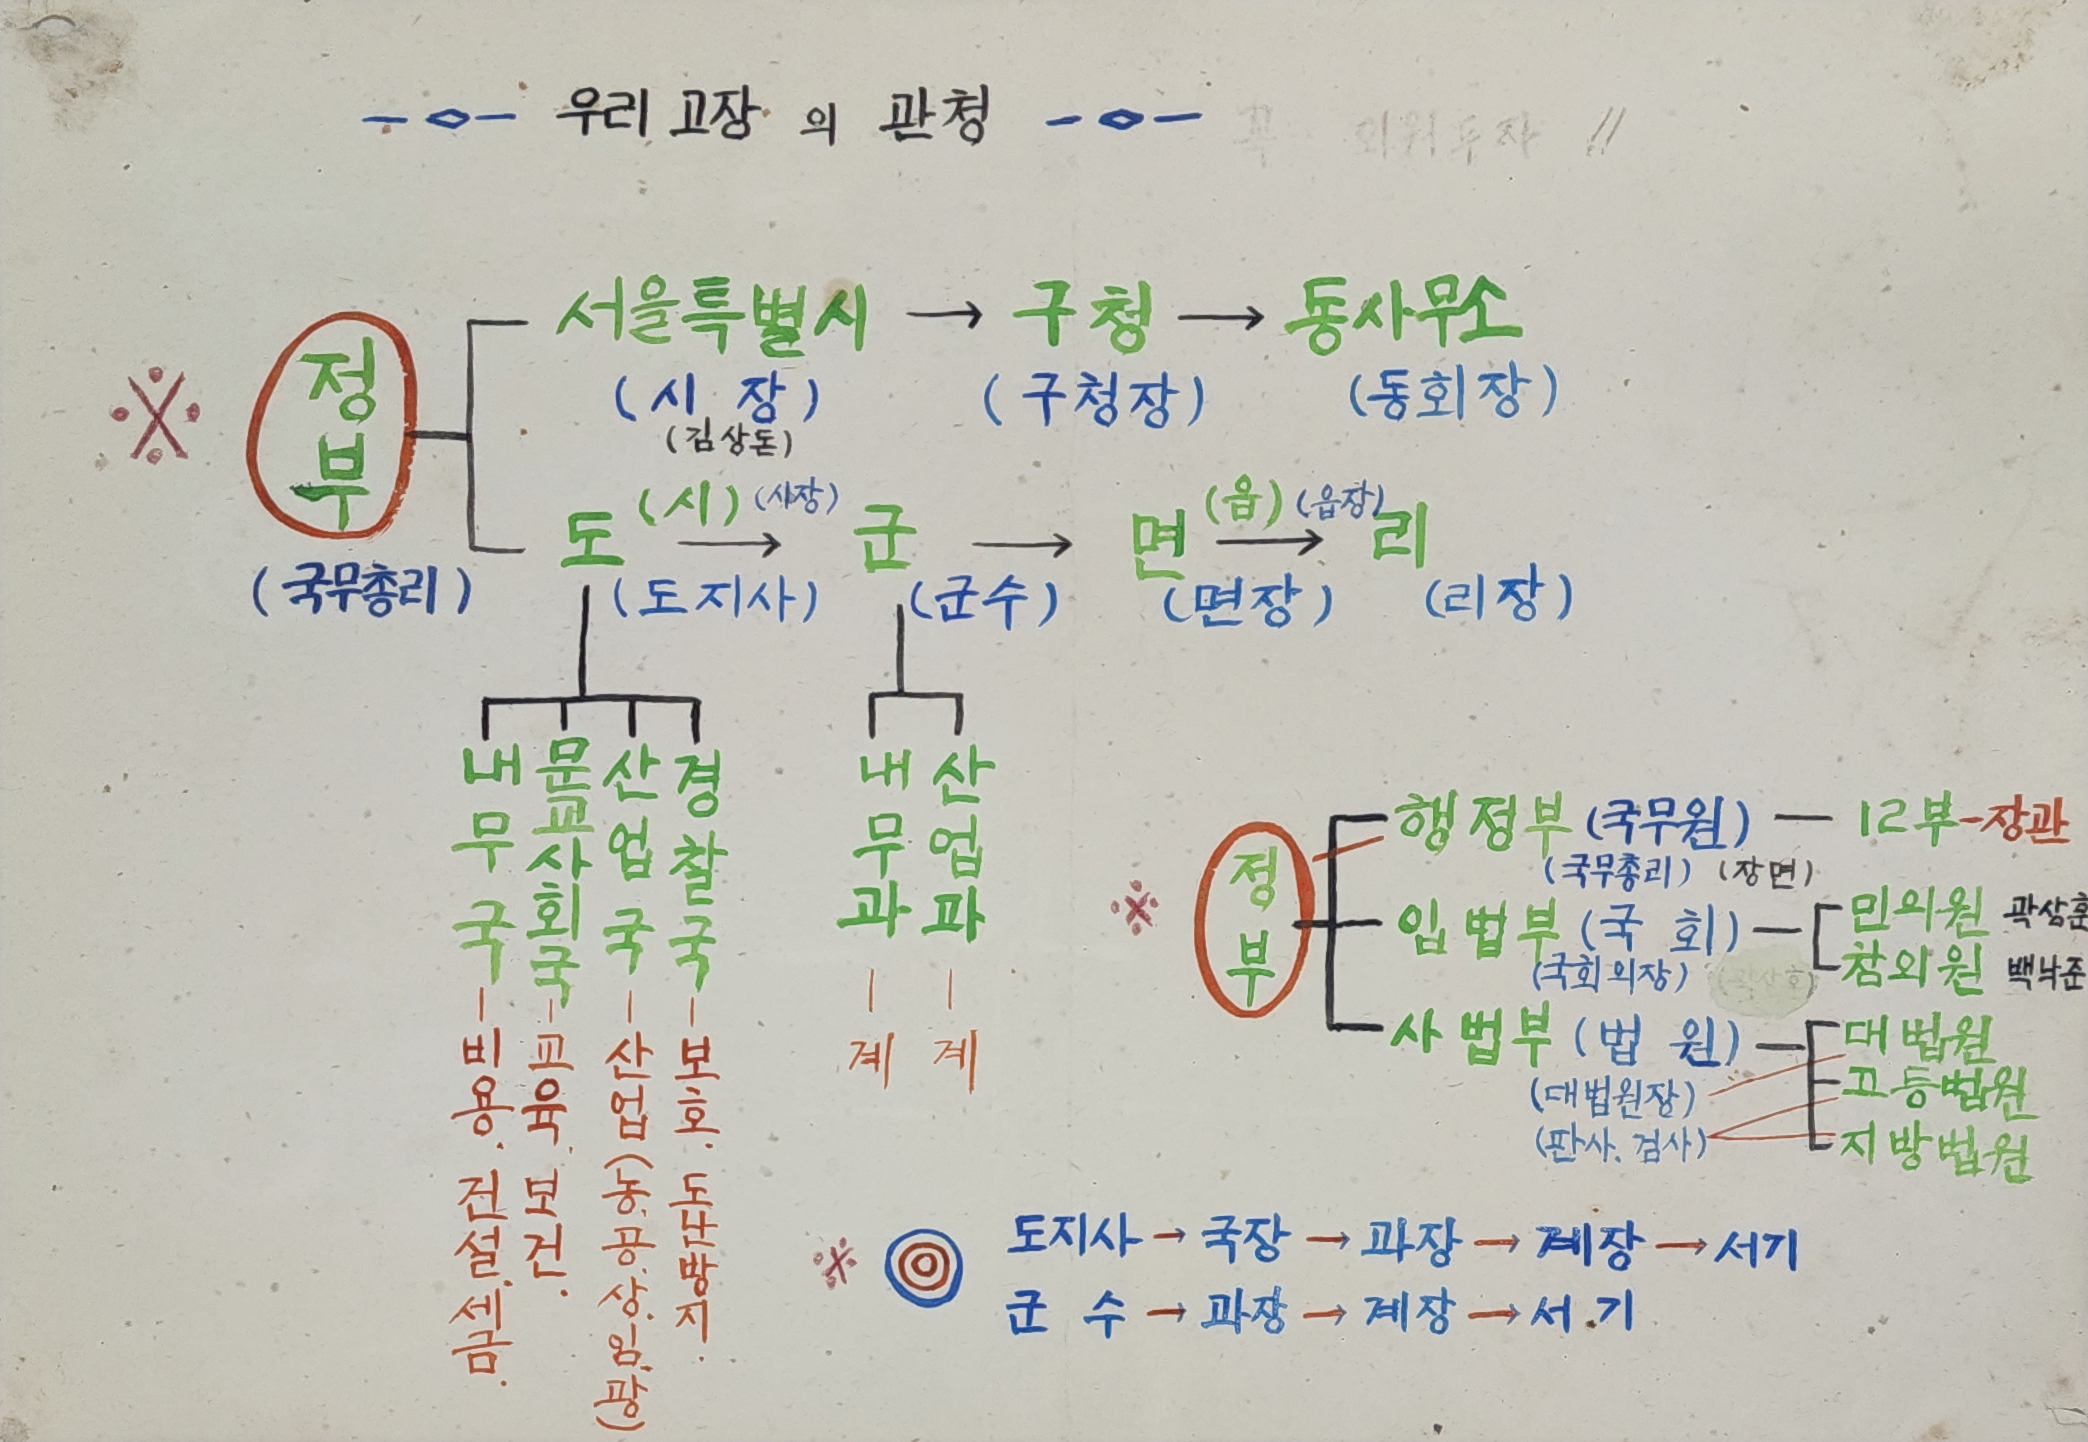 우리 고장 의 관청
정부
(국무총리)
서울특별시 → 구청 → 동사무소
(시 장) (구청장) (동회장)
(김상돈)
(시) (시장) (읍) (읍장)
도 → 군 → 면 → 리
(도지사) (군수) (면장) (리장)
내무국 - 비용. 건설. 세금.
문교사회국 - 교육. 보건.
산업국 - 산업(농.공.상.임.광)
경찰국 - 보호. 도난방지.
내무과 - 계
산업과 - 계
정부
행정부 (국무원) - 12부-장관
(국무총리) (장면)
입법부 (국 회) - 민의원 곽상훈
참의원 백낙준
(국회의장)
사법부 (법 원) - 대법원
고등법원
지방법원
(대법원장)
(판사. 검사)
도지사 → 국장 → 과장 → 계장 → 서기
군 수 → 과장 → 계장 → 서기